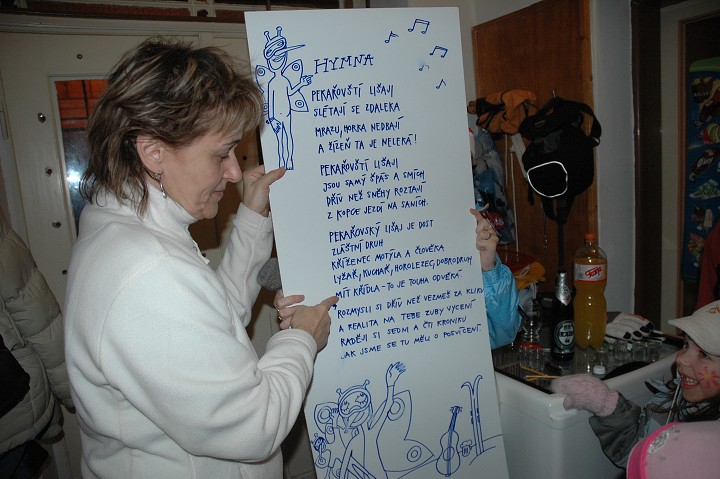 HYMNA
PEKAŘOVŠTÍ LIŠAJI
SLÉTAJÍ SE ZDALEKA
MRAZU, HORKA NEDBAJÍ
A ŽÍZEŇ TA JE NELEKÁ!
PEKAŘOVŠTÍ LIŠAJI
JSOU SAMÝ ŠPÁS A SMÍCH
DŘÍV NEŽ SNĚHY ROZTAJÍ
Z KOPCE JEZDÍ NA SANÍCH.
PEKAŘOVSKÝ LIŠAJ JE DOST
ZLÁŠTNÍ DRUH
KŘÍŽENEC MOTÝLA A ČLOVĚKA
LYŽAŘ, KUCHAŘ, HOROLEZEC, DOBRODRUH
MÍT KŘÍDLA - TO JE TOUHA ODVĚKÁ
ROZMYSLI SI DŘÍV NEŽ VEZMEŠ ZA KLIKU
A REALITA NA TEBE ZUBY VYCENÍ
RADĚJI SI SEDNI A ČTI KRONIKU
JAK JSME SE TU MĚLI O POSVÍCENÍ.